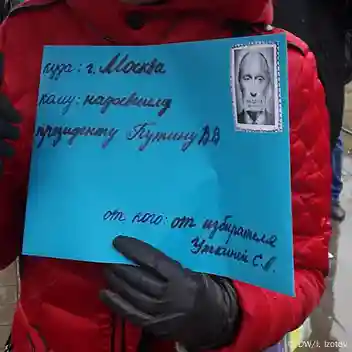 куда: г. Москва
кому: надоевшему
президенту Путину ВВ
от кого: от избирателя
Уткиной С.А.
© DW/I. Izotov